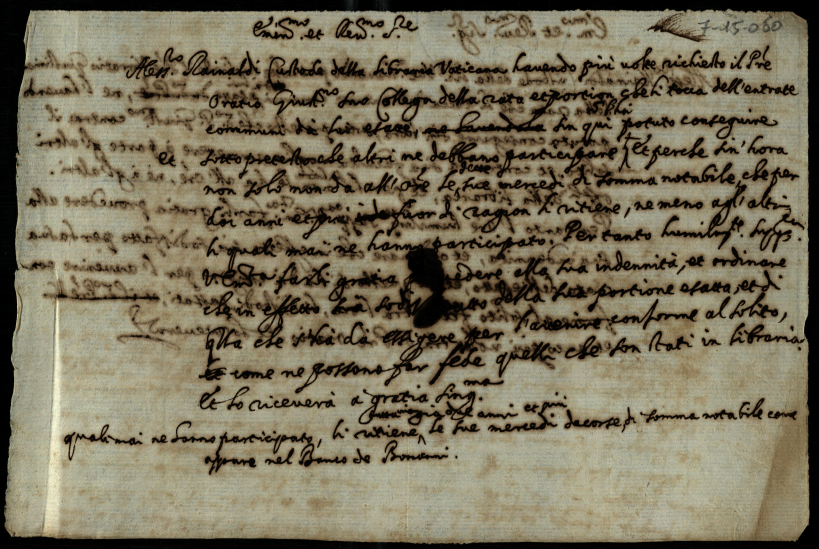 7-15-050
Emin.mo et Rev.mo S.re
Aless.ro Rainaldi Custode della libraria Vaticana havendo più volte richiesto il P're
Oratio Giust.no suo Collega della rata et portion che li tocca dell'entrate
communi da lui esatte, sin qui potuto conseguire
et sotto pretesto che altri ne debbano participare, et perche sin'hora
non solo non da all'Ore le sue mercedi di somma notabile, che per
doi anni et più fuor di ragion li ritiene, ne meno agl'altri
li quali mai ne hanno participato. Per tanto humilm.te
farli gratia dere alla sua indennità, et ordinare
che in effetto sod tto della sua portione esatta, et di
q'lla che s'ha da essigere per l'avenire conforme al solito,
come ne possono far fede quelli che son stati in libraria.
Et lo riceverà a gratia sing.ma
doi anni et più
quali mai ne hanno participato, li ritiene, le sue mercedi decorse, di somma notabile come
appare nel Banco de Bonanni.